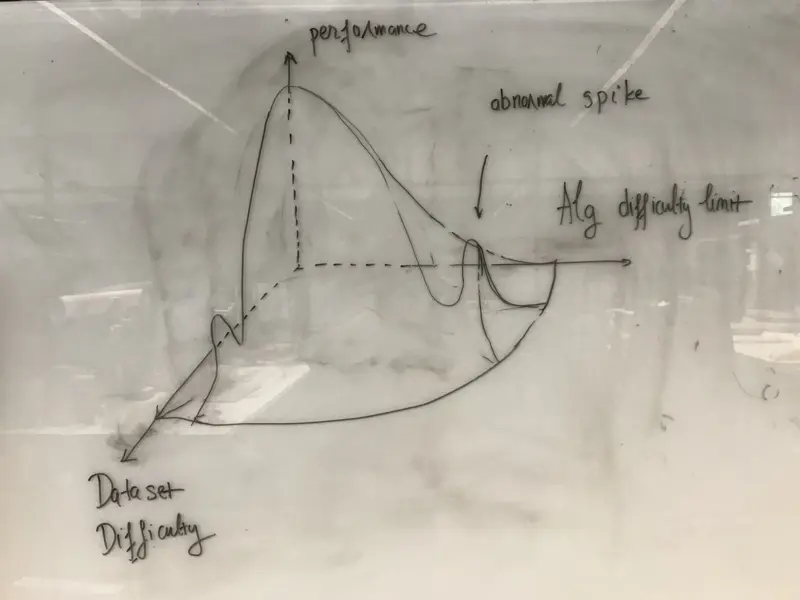 performance
abnormal spike
Alg difficulty limit
Dataset
Difficulty